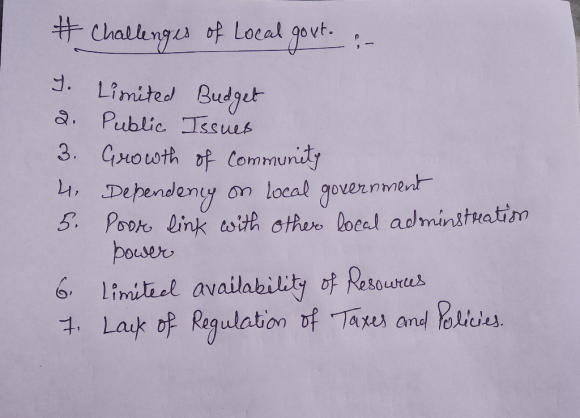 # Challenges of Local govt. :-
1. Limited Budget
2. Public Issues
3. Growth of Community
4. Dependency on local government
5. Poor link with other local adminstration
power
6. Limited availability of Resources
7. Lack of Regulation of Taxes and Policies.